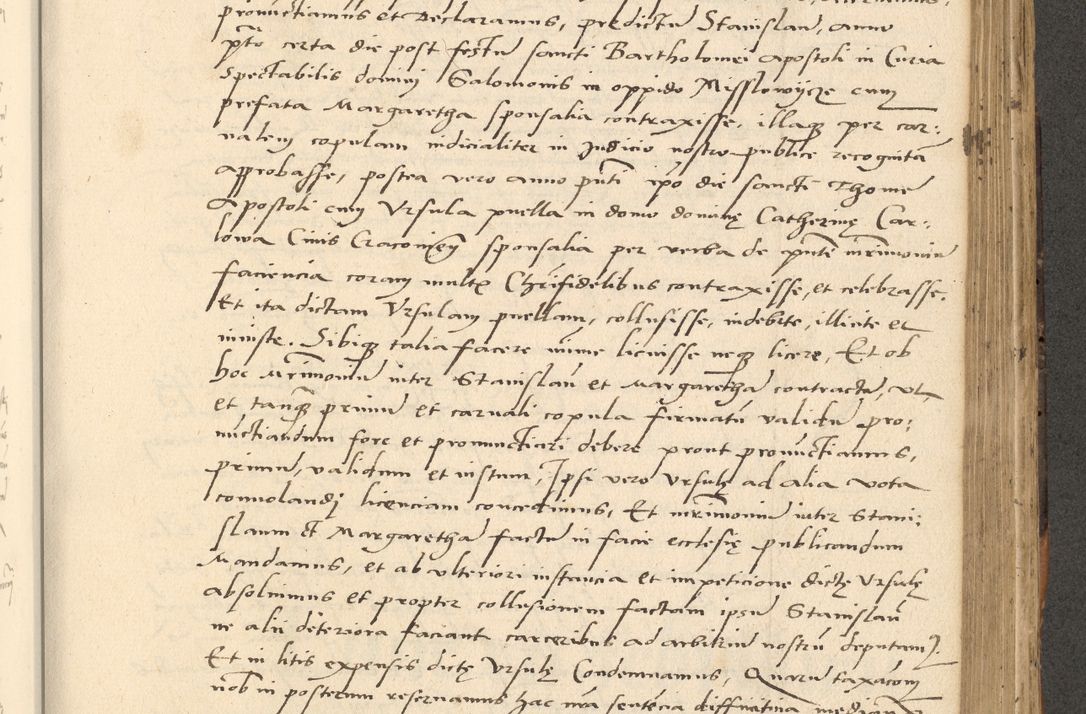 pronuctiamus et Declaramus, predictu Stanislau, anno
pto certa die post festu sancti Bartholomei apostoli in Curia
Spectabilis domini Salomonis in oppido Misslowycze cum
prefata Margaretha sponsalia contraxisse, illaque per car:
nalem copulam iudicialiter in Judicio nostro publice recognita
approbasse, postea vero anno pnti ipo die sancti Thome
Apostoli cum Ursula puella in domo dominę Catherinę Car:
lowa Civis Cracovien sponsalia per verba de pnti mrimoniu
faciencia coram multis Chrifidelibus contraxisse, et celebrasse,
Et ita dictam Ursulam puellam, collusisse, indebite, illicite et
iniuste. Sibique talia facere minime licuisse neque licere, Et ob
hoc Mrimoniu inter Stanislau et Margaretha contractu, ut
et tanque primu et carnali copula firmatu validu pro:
nuctiandum fore et pronunctiari debere prout pronuctiamus,
primu, validum et iustum, Ipsi vero Ursulę ad alia vota
convolandi licenciam concedimus, Et mrimoniu inter Stani:
slaum et Margaretha factu in facie ecclesię publicandum
Mandamus, et ab ulteriori instancia et impeticione dictę Ursulę
absolvimus et propter collusionem factam ipsu Stanislau
ne alii deteriora faciant carceribus ad arbitriu nostru deputam9.
Et in litis expensis dictę Ursulę Condemnamus, Quaru taxacom
nob in posterum reservamus hac nra sentecia diffinitiva mediante